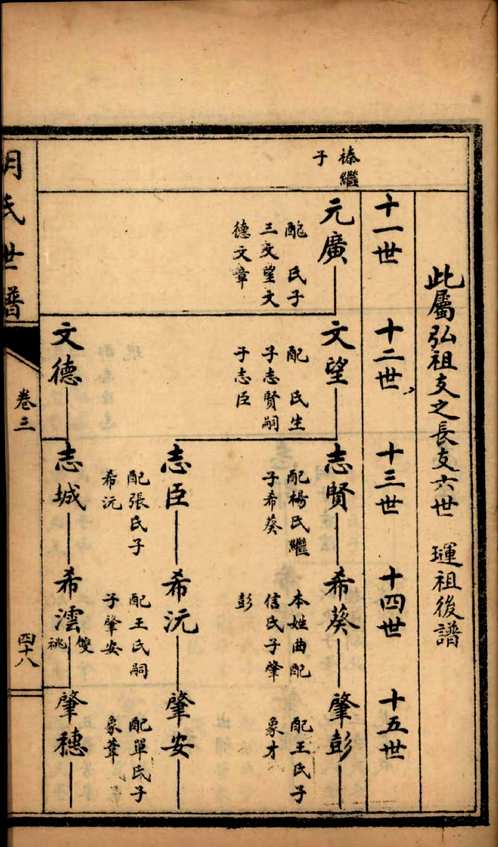 此屬弘祖支之長支六世　㻶祖後譜
十一世
十二世
十三世
十四世
十五世
榛繼
子
元廣
配　氏子
三文望文
德文章
文望
配　氏生
子志賢嗣
子志臣
志賢
配楊氏繼
子希葵
希葵
本姓曲配
信氏子肇
彭
肇彭
配王氏子
象才
志臣
配張氏子
希沅
希沅
配王氏嗣
子肇安
肇安
配單氏子
象葦
文德
志城
希澐
雙
祧
肇穗
氏世譜
卷三
四十八